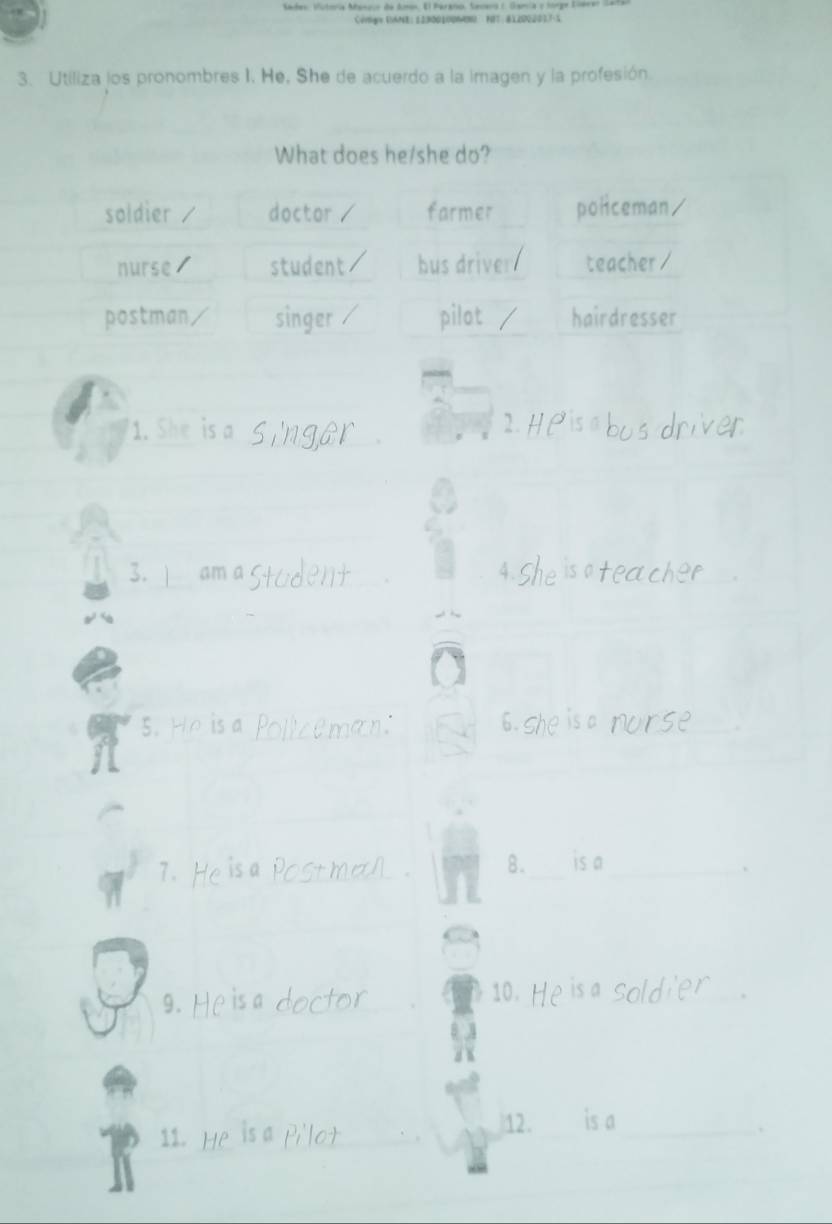 3. Utiliza los pronombres I. He, She de acuerdo a la imagen y la profesión.
What does he/she do?
soldier / doctor / farmer policeman /
nurse / student / bus driver / teacher /
postman / singer / pilot / hairdresser
1. She is a singer.
2. He is a bus driver.
3. I am a student.
4. She is a teacher.
5. He is a Policeman.
6. She is a nurse.
7. He is a Postman.
8. ___ is a ___.
9. He is a doctor.
10. He is a soldier.
11. He is a Pilot.
12. ___ is a ___.